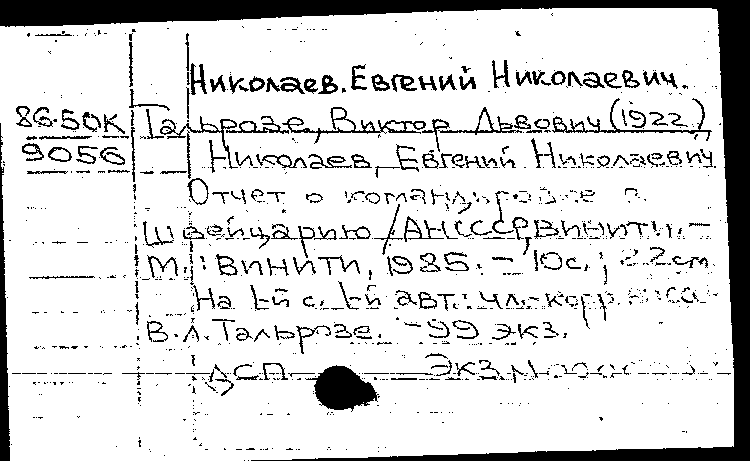 Николаев. Евгений Николаевич.
86-50К Тальрозе, Виктор Львович (1922)
9056 Николаев, Евгений Николаевич
Отчет о командировке в
Швейцарию / АН СССР, ВИНИТИ. –
М. : ВИНИТИ, 1985. – 10 с. ; 22 см
На 1-й с. 1-й авт.: чл.-корр.
В.Л. Тальрозе. – 99 экз.
ДСП Экз. №